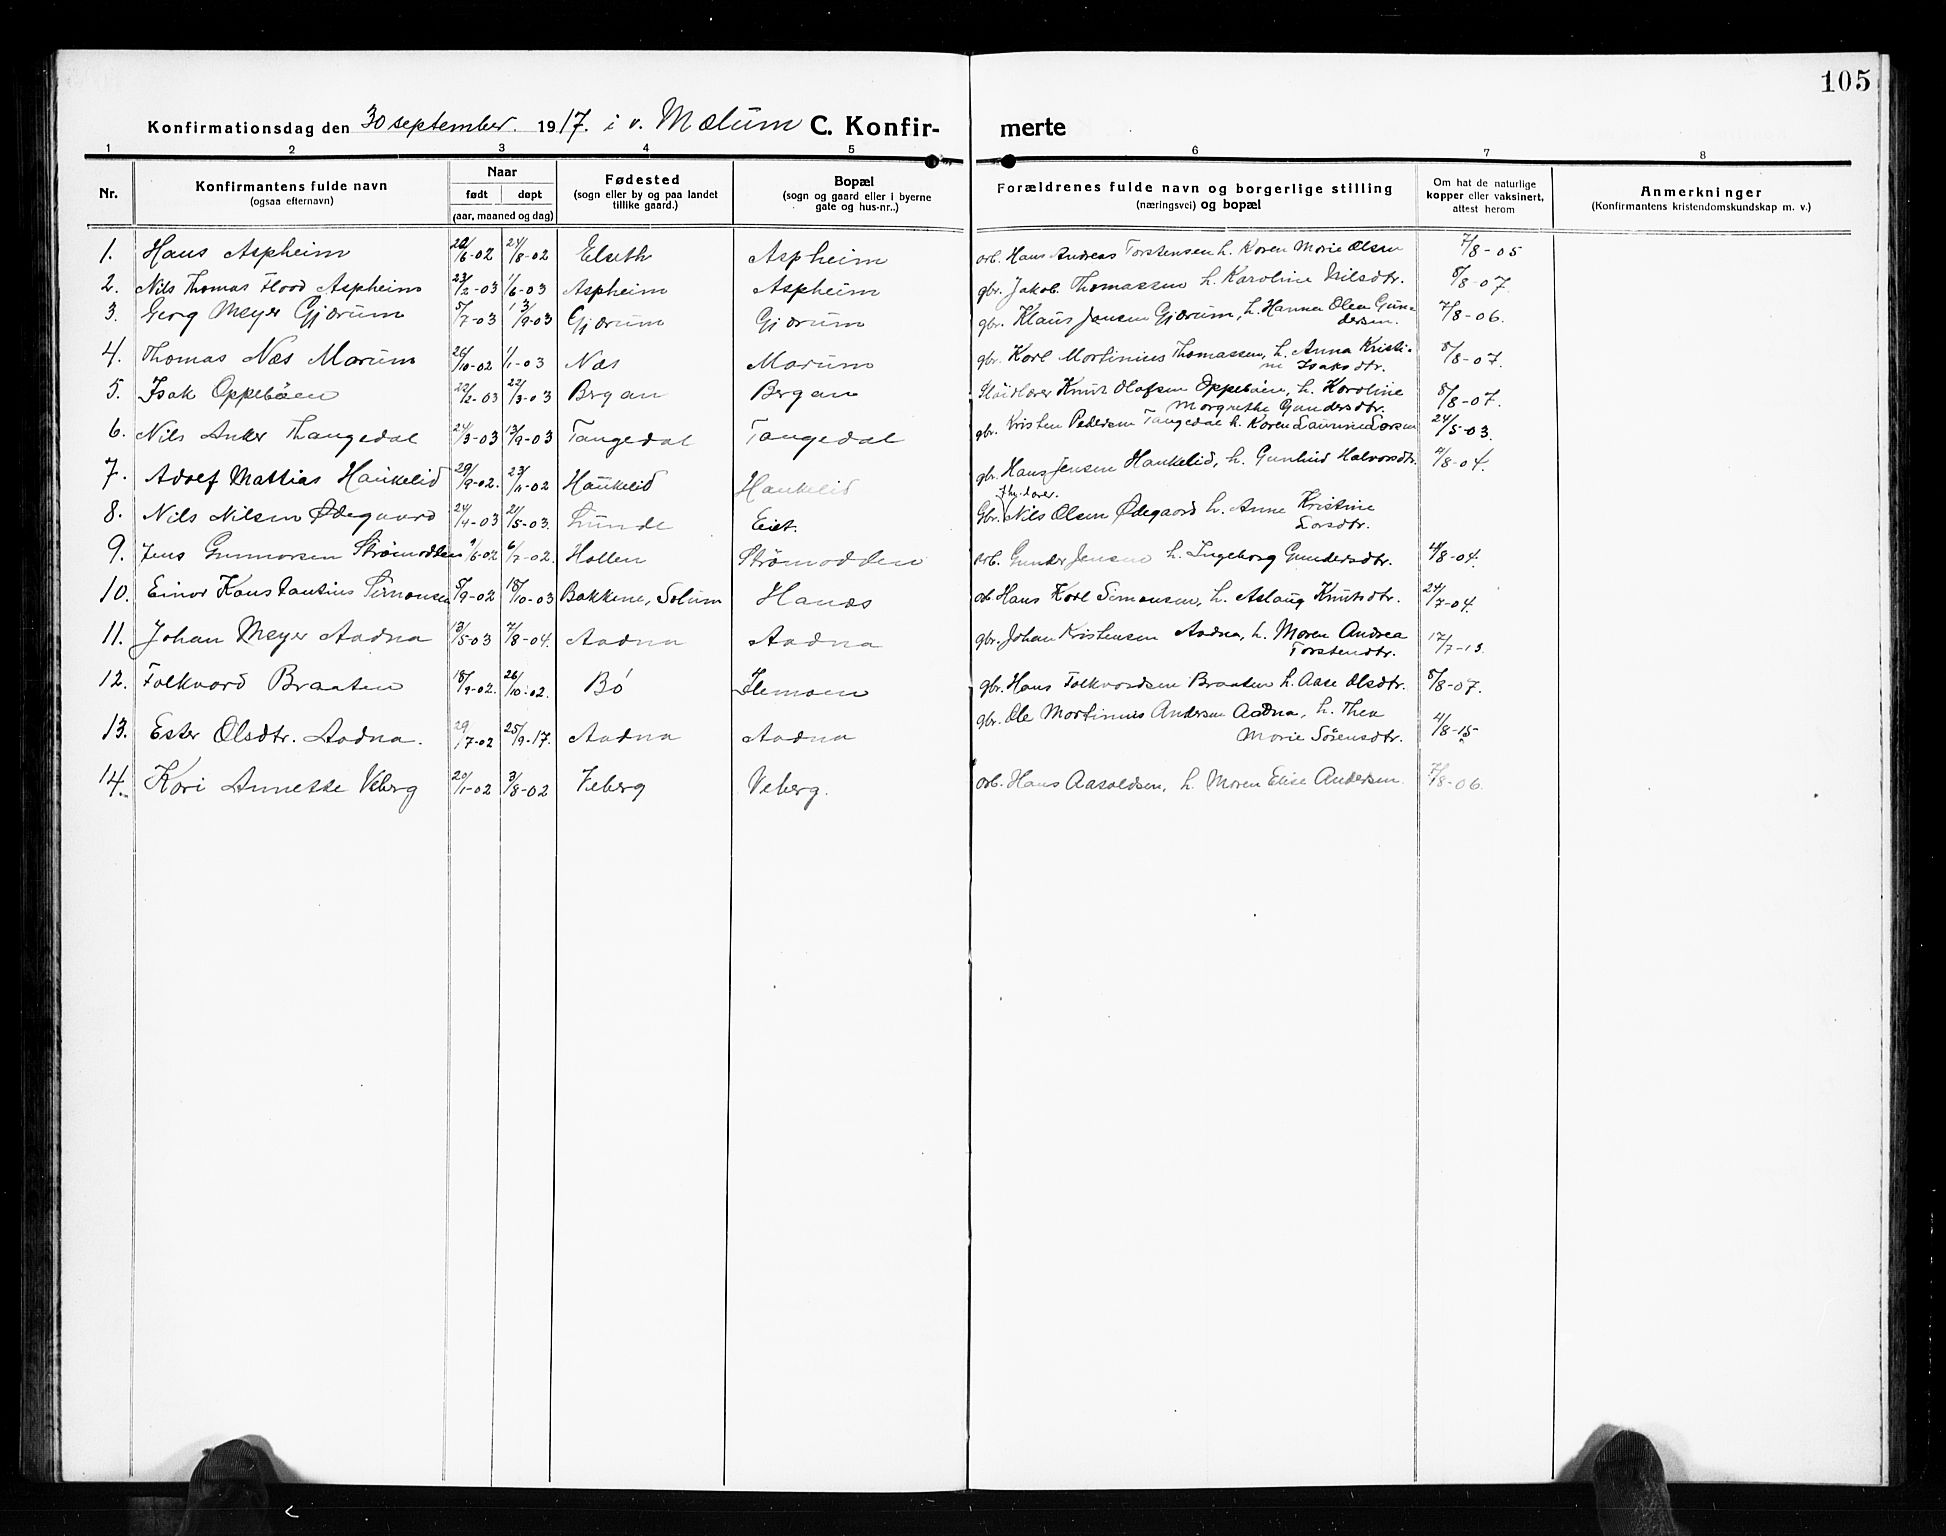 105
Konfirmationsdag den 30 september. 1917. i v. Mælum C. Konfir- merte
1 2 3 4 5 6 7 8
Nr. Konfirmantens fulde navn (ogsaa efternavn) Naar født døpt (aar, maaned og dag) Fødested (sogn eller by og paa landet tillike gaard.) Bopæl (sogn og gaard eller i byerne gate og hus-nr..) Forældrenes fulde navn og borgerlige stilling (næringsvei) og bopæl Om hat de naturlige kopper eller vaksinert, attest herom Anmerkninger (Konfirmantens kristendomskundskap m. v.)
1. Hans Aspheim /6-02 24/8-02 Elseth Aspheim arb. Hans Andreas Torstensen h. Karen Marie Olsen 7/8-05
2. Nils Thomas Flood Aspheim 23/2-03 1/6-03 Aspheim Aspheim gbr. Jakob Thomassen h. Karoline Nilsdtr. 8/8-07.
3. Georg Meyer Gjærum 5/7-03 13/9-03 Gjærum Gjærum gbr. Klaus Jensen Gjærum, h. Hanna Olea Gundersen. 7/8-06.
4. Thomas Næs Marum 26/10-02 1/1-03 Næs Marum gbr. Karl Martinius Thomassen, h. Anna Kristine Isaksdtr. 8/8-07.
5. Isak Oppebøen 22/2-03 22/3-03 Bergan Bergan Sløidlærer Knut Olafsen Oppebøen, h. Karoline Margrethe Gundersdtr. 8/8-07.
6. Nils Anker Thangedal 24/3-03 13/9-03 Tangedal Tangedal gbr. Kristen Pedersen Tangedal h. Karen Larsen 24/5-03.
7. Adolf Mattias Haukelid 29/9-02. 23/11-02 Haukelid Haukelid gbr. Hans Jensen Haukelid, h. Gunhild Halvorsdtr. /8-04.
8. Nils Nilsen Ødegaard 24/4-03 21/5-03. Lunde Eiet. Gbr. Nils Olsen Ødegaard h. Anne Kristine Larsdtr.
9. Jens Gunnarsen Strømodden /6-02 6/7-02. Hollen Strømodden arb. Gunder Jensen h. Ingeborg Gundersdtr. /8-04.
10. Einar Konstantius Simonsen 5/9-02 18/10-03 Bakkene, Solum Hanæs arb. Hans Karl Simonsen, h. Aslaug Knutsdtr. 24/7-04.
11. Johan Meyer Aadna 13/5-03 7/8-04. Aadna Aadna gbr. Johan Kristensen Aadna, h. Maren Andrea Torstendtr. 17/7-13.
12. Folkvard Braaten 18/9-02. 26/10-02. Bø gbr. Hans Folkvardsen Braaten h. Aase Olsdtr. 8/8-07.
13. Ester Olsdtr. Aadna. 29/7-02 25/9-17. Aadna Aadna gbr. Ole Martinius Andersen Aadna, h. Thea Marie Sørensdtr. 4/8-15
14. Kari Annette Veberg 20/1-02 3/8-02 Veberg Veberg. arb. Hans Aasoldsen, h. Maren Elise Andersen. 7/8-06.